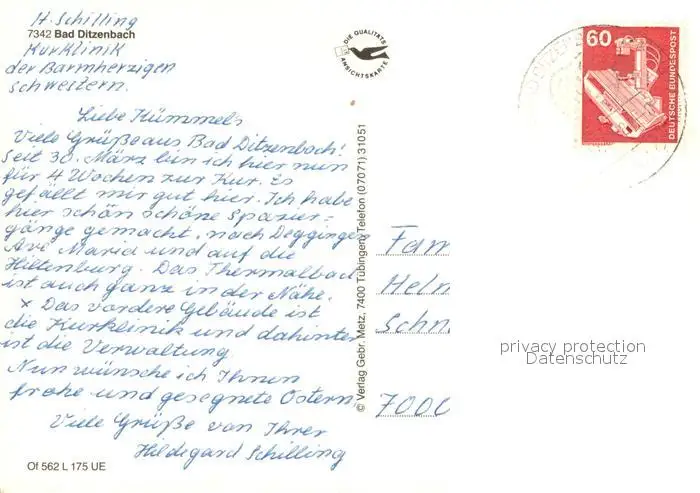 H. Schilling
7342 Bad Ditzenbach
Kurklinik
der Barmherzigen
Schwestern.
Liebe Kümmels
Viele Grüße aus Bad Ditzenbach!
Seit 30. März bin ich hier nun
für 4 Wochen zur Kur. Es
gefällt mir gut hier. Ich habe
hier schön schöne Spazier=
gänge gemacht, nach Deggingen
Ave Maria und auf die
Hiltenburg. Das Thermalbad
ist auch ganz in der Nähe.
x Das vordere Gebäude ist
die Kurklinik und dahinter
ist die Verwaltung
Nun wünsche ich Ihnen
frohe und gesegnete Ostern
Viele Grüße von Ihrer
Hildegard Schilling
Of 562 L 175 UE
DIE QUALITÄTS
ANSICHTSKARTE
© Verlag Gebr. Metz, 7400 Tübingen, Telefon (07071) 31051
60
DEUTSCHE BUNDESPOST
Fam
Helm
Schn
7000
privacy protection
Datenschutz